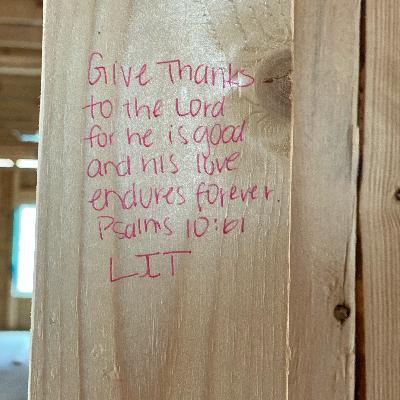 Give Thanks
to the Lord
for he is good
and his love
endures forever.
Psalms 10:61
LIT